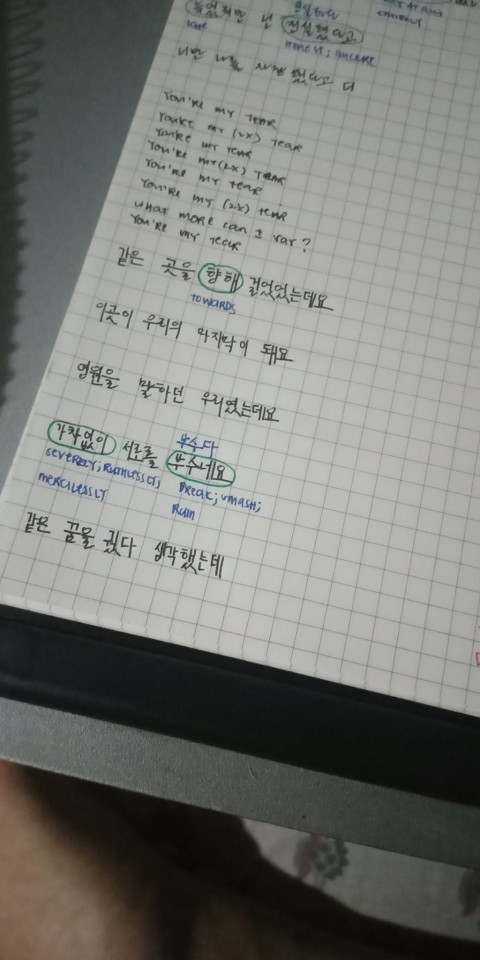 늦었지만 넌 진실했다고
late honest; sincere
너만 나를 사랑했다고 더
You're my tear
You're my (2x) tear
You're my tear
You're my (2x) tear
You're my tear
You're my (2x) tear
What more can I say?
You're my tear
같은 곳을 향해 걸었었는데요
TOWARDS
이곳이 우리의 마지막이 돼요
영원을 말하던 우리였는데요
부수다
가차없이 서로를 부수네요
severely; ruthlessly; break; smash;
mercilessly ruin
같은 꿈을 꿨다 생각했는데